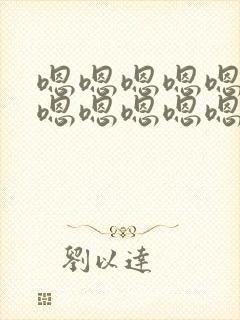 嗯嗯嗯嗯嗯
嗯嗯嗯嗯嗯
劉以達